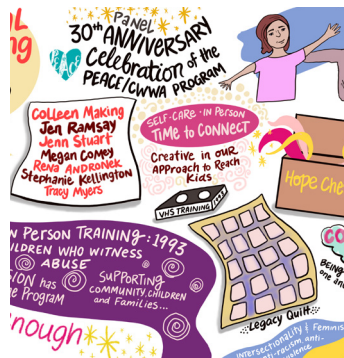 Panel
30th ANNIVERSARY
Celebration of the
PEACE/CWWA PROGRAM
PEACE
Colleen Making
Jen Ramsay
Jenn Stuart
Megan Comey
Rena Andronek
Stephanie Kellington
Tracy Myers
SELF-CARE · IN PERSON
TIME to CONNECT
Creative in our
Approach to Reach
Kids
VHS TRAINING
Hope Che
N PERSON TRAINING: 1993
ILDREN WHO WITNESS
ABUSE
SION has
e Program
SUPPORTING
COMMUNITY, CHILDREN
and Families...
nough
Legacy Quilt
CO
BEING
one an
INTERSECTIONALITY & Feminis
anti-racism, anti-